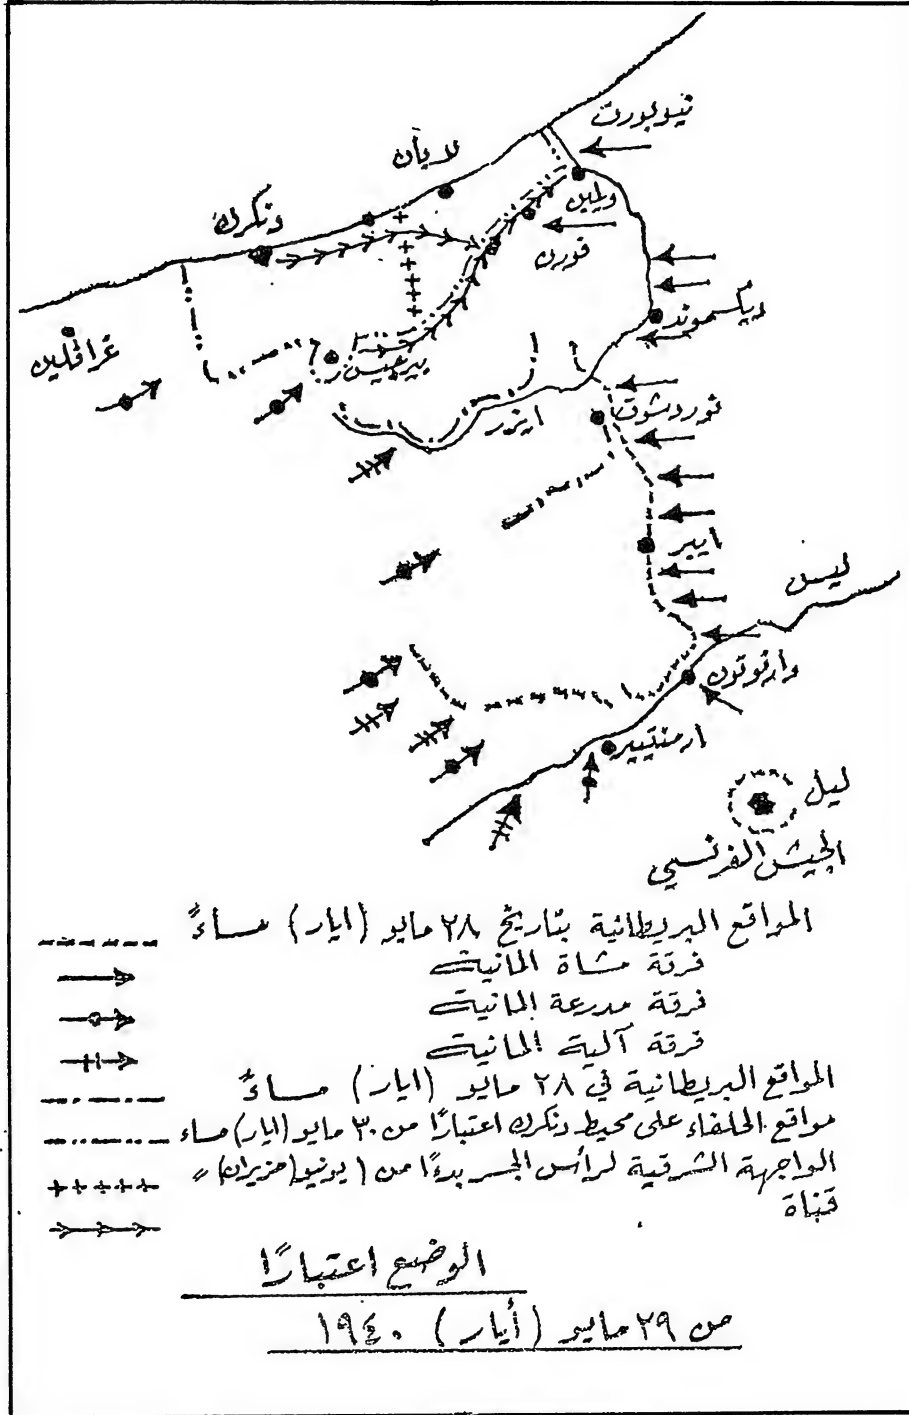 نيوبورت
لابان
ويلبين
دنكرك
فورن
ديكسموند
غرافلين
بيرجيس
نوردشوت
ايزر
ايبر
ليس
وارنوتون
ارمنتيير
ليل
الجيش الفرنسي
المواقع البريطانية بتاريخ ٢٨ مايو (ايار) مساءً
فرقة مشاة المانية
فرقة مدرعة المانية
فرقة آلية المانية
المواقع البريطانية في ٢٨ مايو (ايار) مساءً
مواقع الحلفاء على محيط دنكرك اعتبارًا من ٣٠ مايو (ايار) مساء
الواجهة الشرقية لرأس الجسر بدءًا من ١ يونيو (حزيران) "
قناة
الوضع اعتبارًا
من ٢٩ مايو (أيار) ١٩٤٠